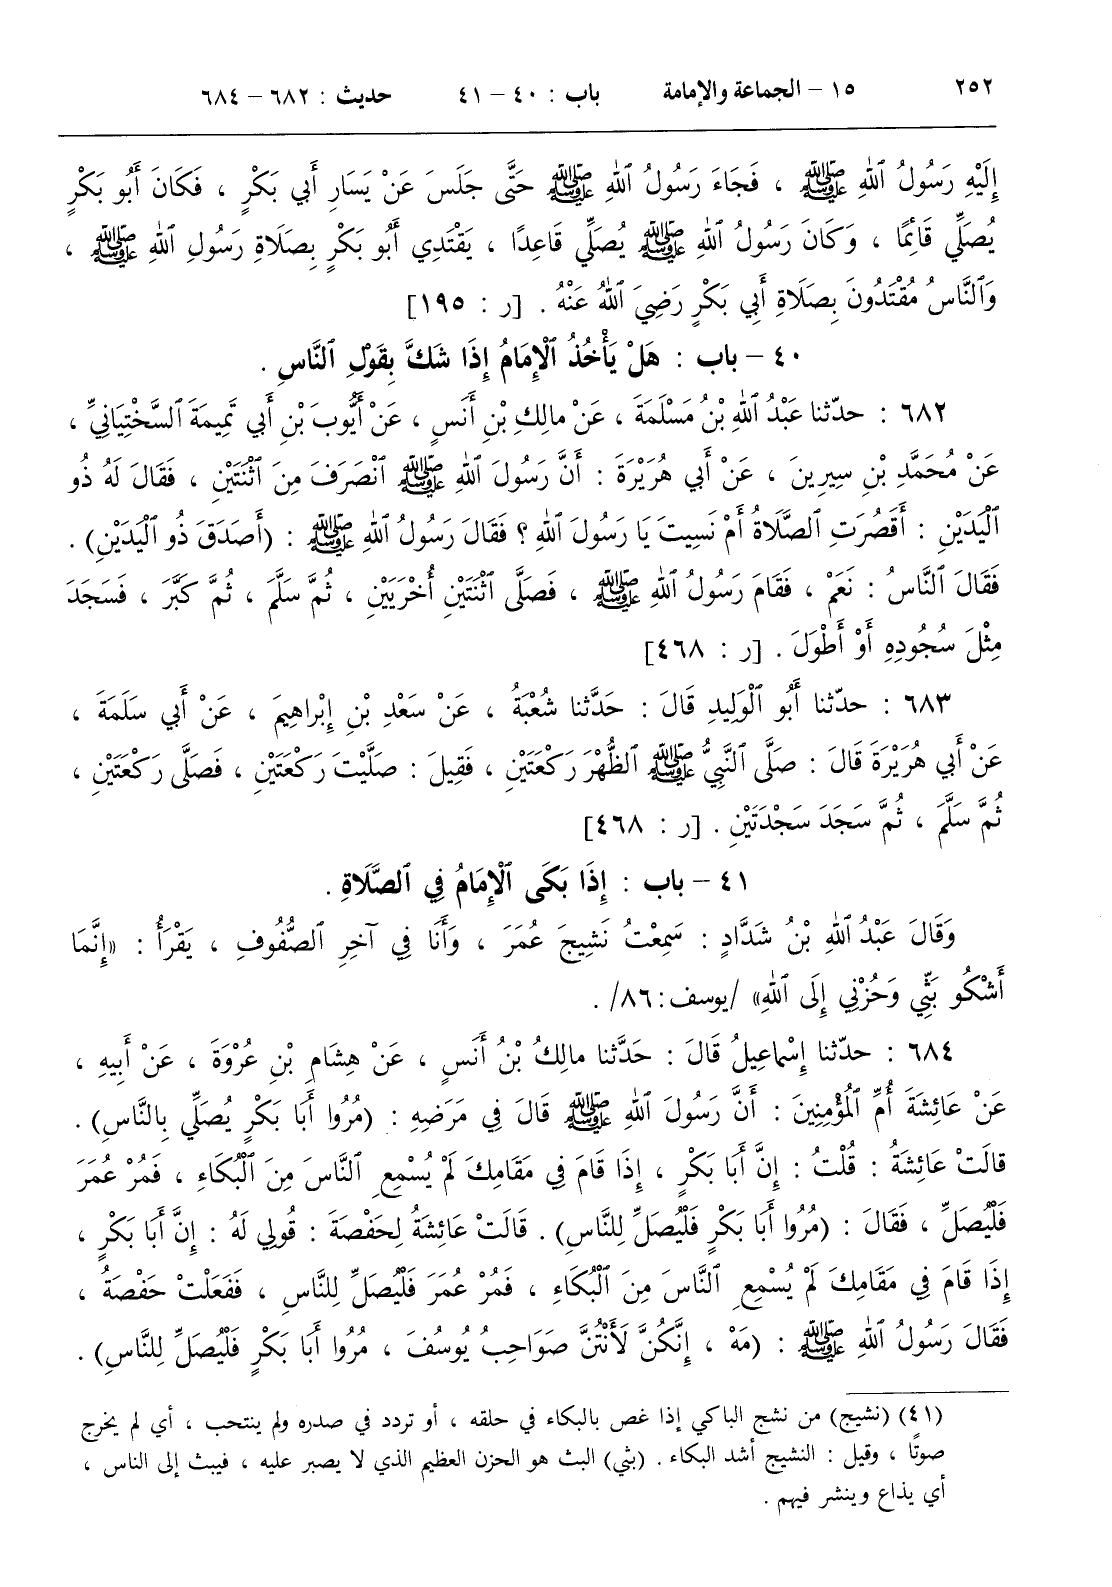 ٢٥٢ ١٥ – الجماعة والإمامة باب : ٤٠ – ٤١ حديث : ٦٨٢ – ٦٨٤
إِلَيْهِ رَسُولُ ٱللهِ ﷺ ، فَجَاءَ رَسُولُ ٱللهِ ﷺ حَتَّى جَلَسَ عَنْ يَسَارِ أَبِي بَكْرٍ ، فَكَانَ أَبُو بَكْرٍ
يُصَلِّي قَائِمًا ، وَكَانَ رَسُولُ ٱللهِ ﷺ يُصَلِّي قَاعِدًا ، يَقْتَدِي أَبُو بَكْرٍ بِصَلَاةِ رَسُولِ ٱللهِ ﷺ ،
وَٱلنَّاسُ مُقْتَدُونَ بِصَلَاةِ أَبِي بَكْرٍ رَضِيَ ٱللهُ عَنْهُ . [ر : ١٩٥]
٤٠ – باب : هَلْ يَأْخُذُ ٱلْإِمَامُ إِذَا شَكَّ بِقَوْلِ ٱلنَّاسِ .
٦٨٢ : حدّثنا عَبْدُ ٱللهِ بْنُ مَسْلَمَةَ ، عَنْ مالِكِ بْنِ أَنَسٍ ، عَنْ أَيُّوبَ بْنِ أَبِي تَمِيمَةَ ٱلسَّخْتِيَانِيِّ ،
عَنْ مُحَمَّدِ بْنِ سِيرِينَ ، عَنْ أَبِي هُرَيْرَةَ : أَنَّ رَسُولَ ٱللهِ ﷺ ٱنْصَرَفَ مِنَ ٱثْنَتَيْنِ ، فَقَالَ لَهُ ذُو
ٱلْيَدَيْنِ : أَقَصُرَتِ ٱلصَّلَاةُ أَمْ نَسِيتَ يَا رَسُولَ ٱللهِ ؟ فَقَالَ رَسُولُ ٱللهِ ﷺ : (أَصَدَقَ ذُو ٱلْيَدَيْنِ) .
فَقَالَ ٱلنَّاسُ : نَعَمْ ، فَقَامَ رَسُولُ ٱللهِ ﷺ ، فَصَلَّى ٱثْنَتَيْنِ أُخْرَيَيْنِ ، ثُمَّ سَلَّمَ ، ثُمَّ كَبَّرَ ، فَسَجَدَ
مِثْلَ سُجُودِهِ أَوْ أَطْوَلَ . [ر : ٤٦٨]
٦٨٣ : حدّثنا أَبُو ٱلْوَلِيدِ قَالَ : حَدَّثَنا شُعْبَةُ ، عَنْ سَعْدِ بْنِ إِبْراهِيمَ ، عَنْ أَبِي سَلَمَةَ ،
عَنْ أَبِي هُرَيْرَةَ قَالَ : صَلَّى ٱلنَّبِيُّ ﷺ ٱلظُّهْرَ رَكْعَتَيْنِ ، فَقِيلَ : صَلَّيْتَ رَكْعَتَيْنِ ، فَصَلَّى رَكْعَتَيْنِ ،
ثُمَّ سَلَّمَ ، ثُمَّ سَجَدَ سَجْدَتَيْنِ . [ر : ٤٦٨]
٤١ – باب : إِذَا بَكَى ٱلْإِمَامُ فِي ٱلصَّلَاةِ .
وَقَالَ عَبْدُ ٱللهِ بْنُ شَدَّادٍ : سَمِعْتُ نَشِيجَ عُمَرَ ، وَأَنَا فِي آخِرِ ٱلصُّفُوفِ ، يَقْرَأُ : «إِنَّمَا
أَشْكُو بَثِّي وَحُزْنِي إِلَى ٱللهِ» /يوسف: ٨٦/ .
٦٨٤ : حدّثنا إِسْماعِيلُ قَالَ : حَدَّثَنا مالِكُ بْنُ أَنَسٍ ، عَنْ هِشَامِ بْنِ عُرْوَةَ ، عَنْ أَبِيهِ ،
عَنْ عَائِشَةَ أُمِّ ٱلْمُؤْمِنِينَ : أَنَّ رَسُولَ ٱللهِ ﷺ قَالَ فِي مَرَضِهِ : (مُرُوا أَبَا بَكْرٍ يُصَلِّي بِالنَّاسِ) .
قالَتْ عَائِشَةُ : قُلْتُ : إِنَّ أَبَا بَكْرٍ ، إِذَا قَامَ فِي مَقَامِكَ لَمْ يُسْمِعِ ٱلنَّاسَ مِنَ ٱلْبُكَاءِ ، فَمُرْ عُمَرَ
فَلْيُصَلِّ ، فَقَالَ : (مُرُوا أَبَا بَكْرٍ فَلْيُصَلِّ لِلنَّاسِ) . قَالَتْ عَائِشَةُ لِحَفْصَةَ : قُولِي لَهُ : إِنَّ أَبَا بَكْرٍ ،
إِذَا قَامَ فِي مَقَامِكَ لَمْ يُسْمِعِ ٱلنَّاسَ مِنَ ٱلْبُكَاءِ ، فَمُرْ عُمَرَ فَلْيُصَلِّ لِلنَّاسِ ، فَفَعَلَتْ حَفْصَةُ ،
فَقَالَ رَسُولُ ٱللهِ ﷺ : (مَهْ ، إِنَّكُنَّ لَأَنْتُنَّ صَوَاحِبُ يُوسُفَ ، مُرُوا أَبَا بَكْرٍ فَلْيُصَلِّ لِلنَّاسِ) .
(٤١) (نشيج) من نشج الباكي إذا غص بالبكاء في حلقه ، أو تردد في صدره ولم ينتحب ، أي لم يخرج
صوتًا ، وقيل : النشيج أشد البكاء . (بثي) البث هو الحزن العظيم الذي لا يصبر عليه ، فيبث إلى الناس ،
أي يذاع وينشر فيهم .